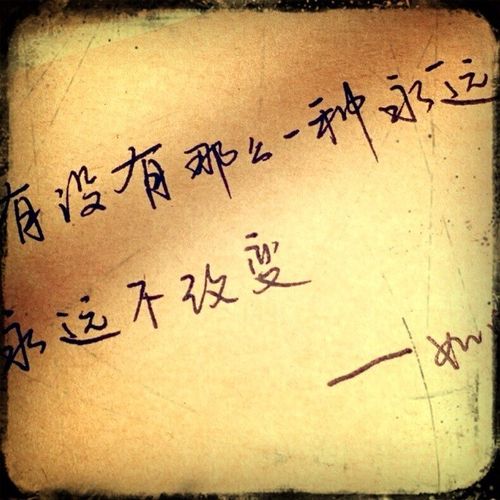 有没有那么一种永远
永远不改变
一如